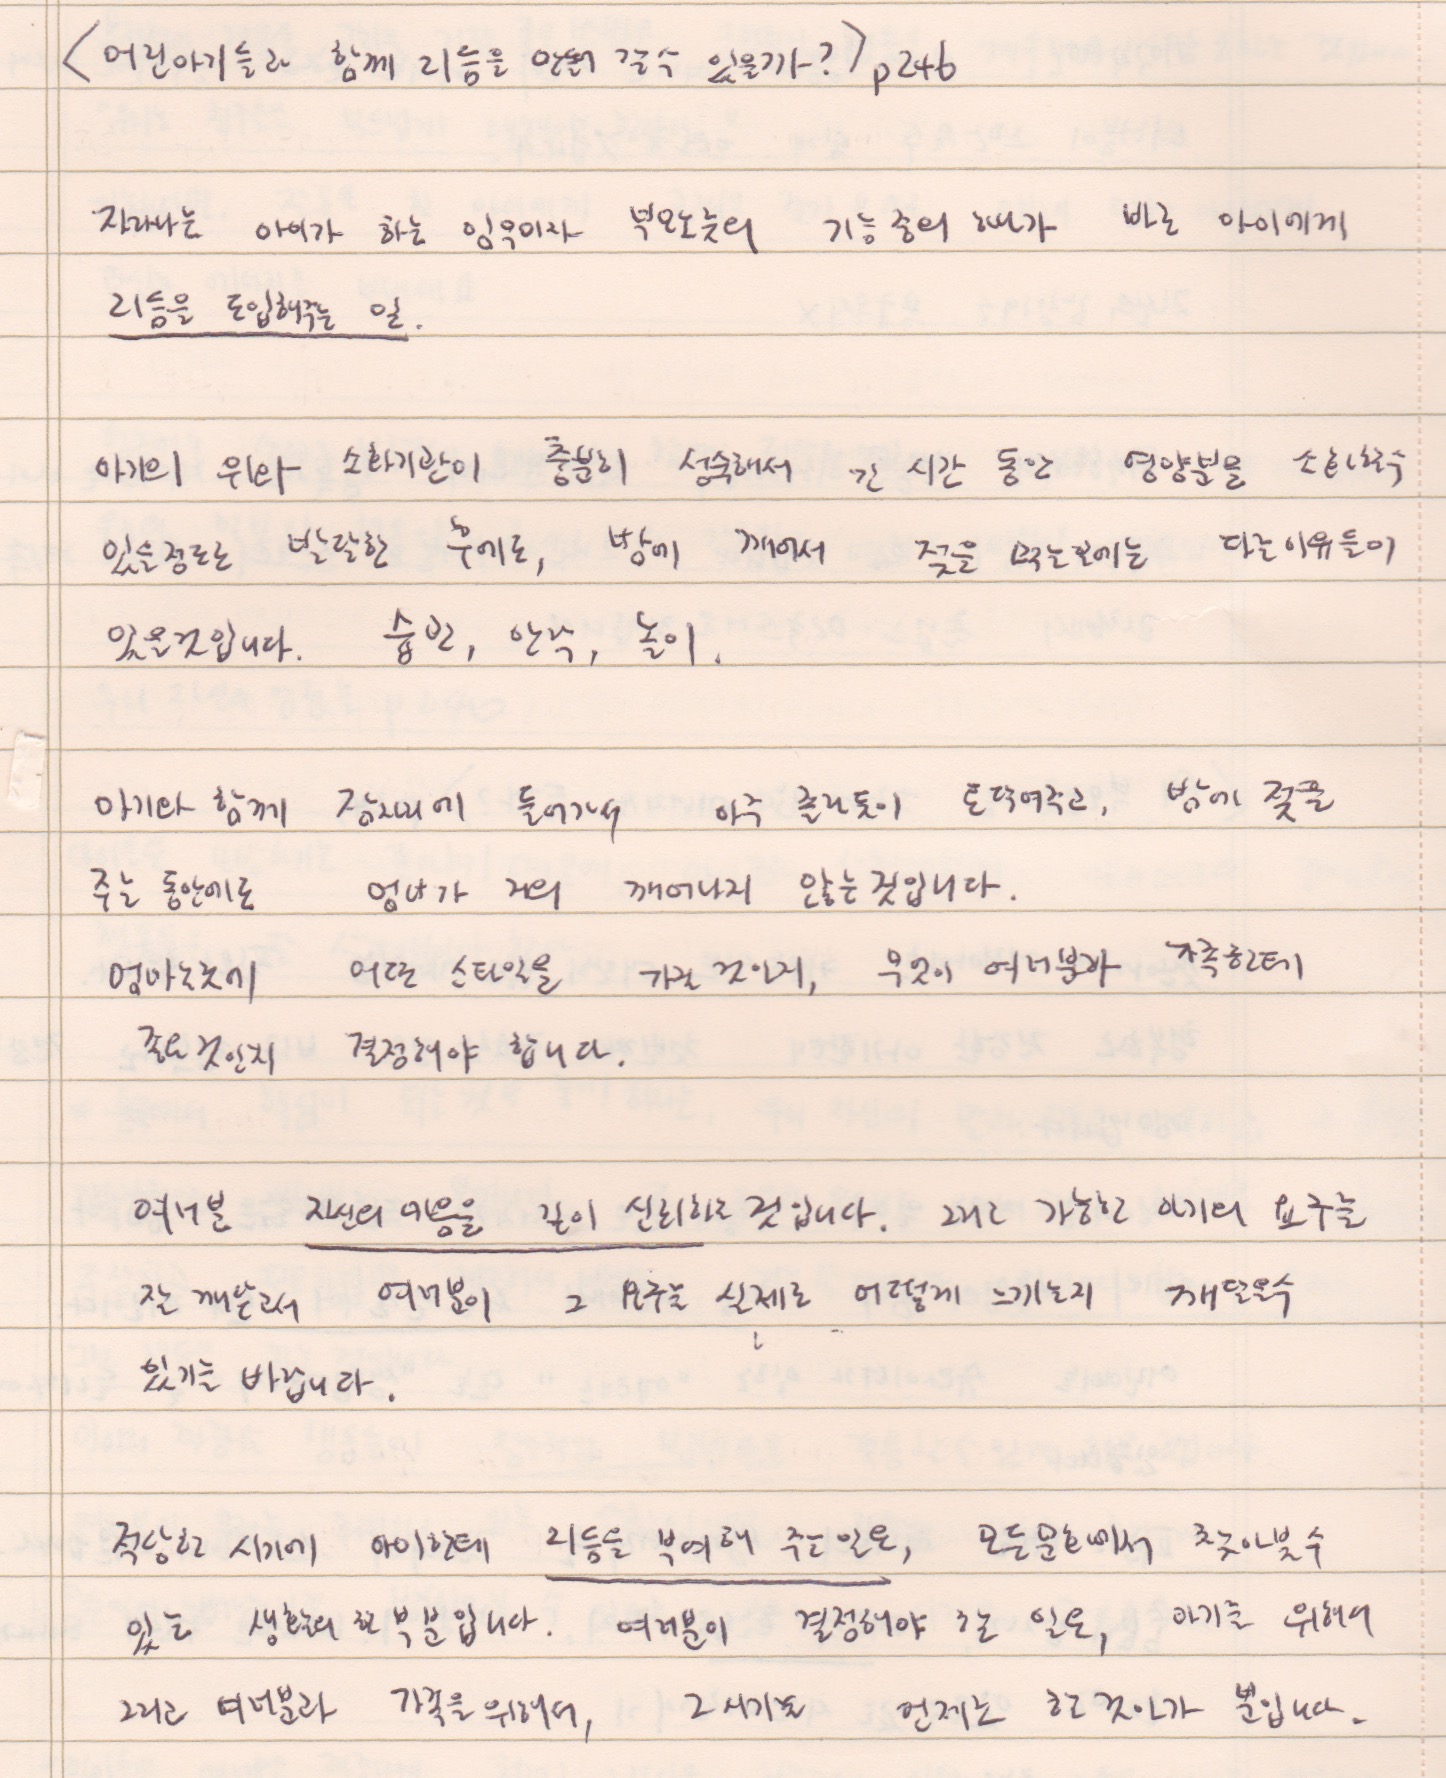 <어린아기들과 함께 리듬을 안되 갈수 있을까?> p246
자라나는 아이가 하는 임무이자 부모노릇의 기능 중의 하나가 바로 아이에게
리듬을 도입해주는 일.
아기의 위와 소화기관이 충분히 성숙해서 긴 시간 동안 영양분을 소화할수
있을정도로 발달한 후에도, 밤에 깨어서 젖을 먹는데에는 다른이유들이
있을것입니다. 습관, 안락, 놀이.
아기와 함께 잠자리에 들어가서 아주 졸라듯이 토닥여주고, 밤에 젖을
주는 동안에도 엄마가 거의 깨어나지 않는것입니다.
엄마노릇에 어떤 스타일을 가질 것인지, 무엇이 여러분과 가족한테
중요것인지 결정해야 합니다.
여러분 자신의 마음을 깊이 신뢰하는 것입니다. 그리고 가능한 아기의 요구를
잘 깨닫고서 여러분이 그 요구를 실제로 어떻게 느끼는지 깨달을수
있기를 바랍니다.
적당한 시기에 아이한테 리듬을 부여해 주는일도, 모든문화에서 찾아볼수
있는 생활의 한 부분입니다. 여러분이 결정해야 할 일도, 아기를 위해서
그리고 여러분과 가족을 위해서, 그 시기를 언제로 할 것인가 뿐입니다.